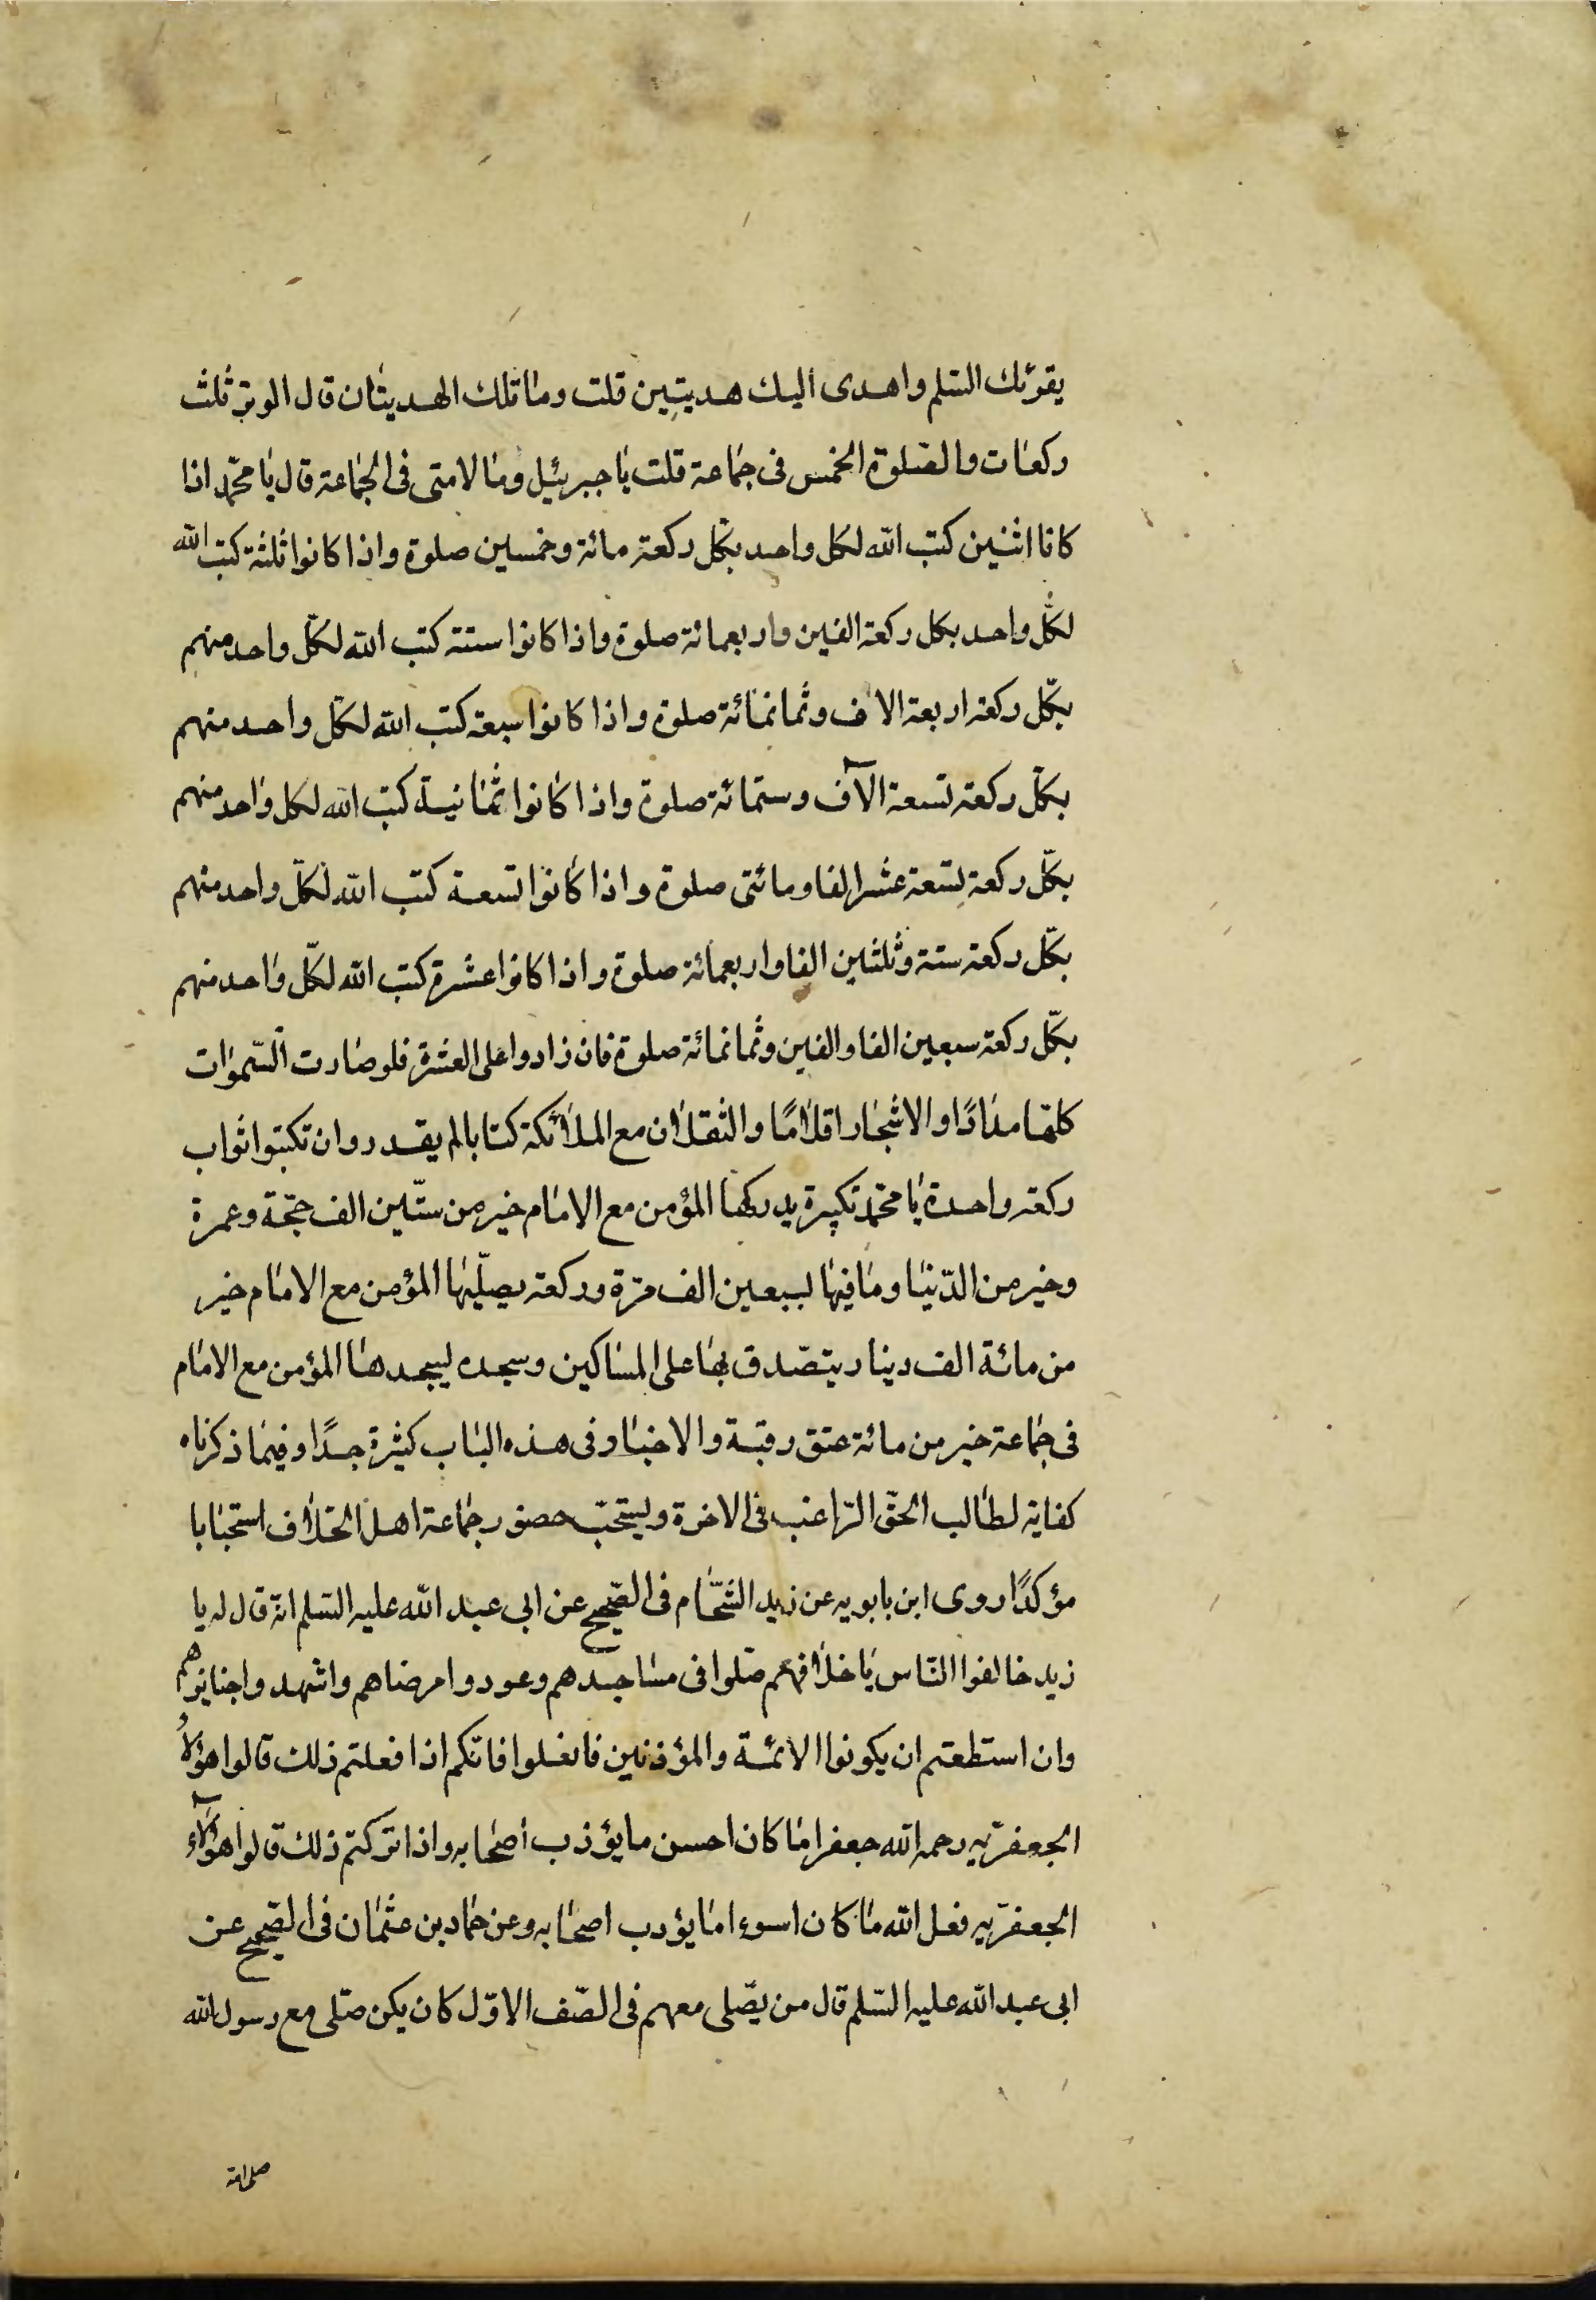 يقرئك السلم واهدى اليك هديتين قلت وما تلك الهديتان قال الوتر ثلث
ركعات والصلوة الخمس فى جماعة قلت يا جبرئيل وما لامتى فى الجماعة قال يا محمّد اذا
كانا اثنين كتب الله لكل واحد بكل ركعة مائة وخمسين صلوة واذا كانوا ثلثة كتب الله
لكلّ واحد بكل ركعة الفين واربعمائة صلوة واذا كانوا ستة كتب الله لكلّ واحد منهم
بكلّ ركعة اربعة الاف وثمانمائة صلوة واذا كانوا سبعة كتب الله لكلّ واحد منهم
بكلّ ركعة تسعة الآف وستمائة صلوة واذا كانوا ثمانية كتب الله لكل واحد منهم
بكلّ ركعة تسعة عشر الفا ومائتى صلوة واذا كانوا تسعة كتب الله لكلّ واحد منهم
بكلّ ركعة ستة وثلثين الفا واربعمائة صلوة واذا كانوا عشرة كتب الله لكلّ واحد منهم
بكلّ ركعة سبعين الفا والفين وثمانمائة صلوة فان زادوا على العشرة فلو صارت السّموات
كلها مدادًا والاشجار اقلامًا والثقلان مع الملائكة كتابا لم يقدروا ان تكتبوا ثواب
ركعة واحدة يا محمّد تكبيرة يدركها المؤمن مع الامام خير من ستّين الف حجّة وعمرة
وخير من الدّنيا وما فيها لسبعين الف مرّة وركعة يصلّيها المؤمن مع الامام خير
من مائة الف دينار يتصّدق بها على المساكين وسجده ليسجدها المؤمن مع الامام
فى جماعة خير من مائة عتق رقبة والاخبار فى هذه الباب كثيرة جدًا وفيما ذكرناه
كفاية لطالب الحقّ الرّاغب فى الاخرة ويستحبّ حضور جماعة اهل الخلاف استحبابا
مؤكدًا روى ابن بابويه عن زيد الشّحام فى الصّحيح عن ابى عبد الله عليه السّلم انّه قال له يا
زيد خالفوا النّاس يا خلافهم صّلوا فى مساجدهم وعودوا مرضاهم واشهدوا جنايزهم
وان استطعتم ان يكونوا الائمّة والمؤذنين فافعلوا فانّكم اذا فعلتم ذلك قالوا هؤلاء
الجعفريّه رحمه الله جعفرا ما كان احسن ما يؤذب أصحابه واذا تركتم ذلك قالوا هؤلآء
الجعفريّه فعل الله ما كان اسوء اما يؤدب اصحابه وعن حماد بن عثمان فى الصّحيح عن
ابى عبد الله عليه السّلم قال من يصّلى معهم فى الصّف الاوّل كان يكن صّلى مع رسول الله
صلى الله